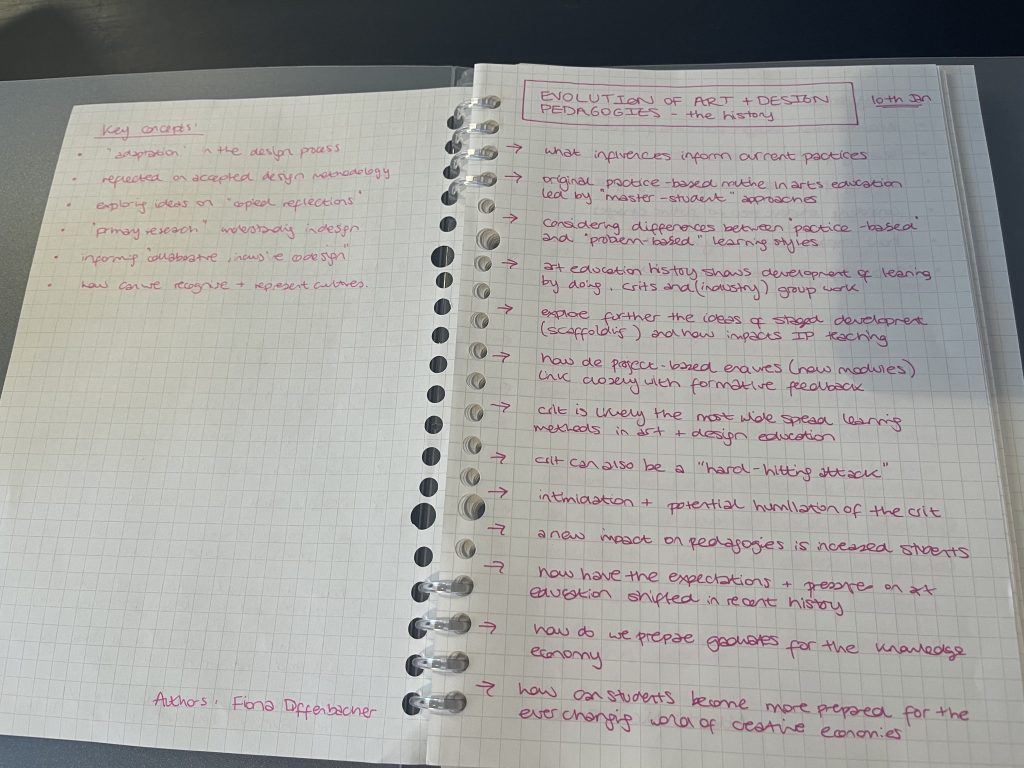 Key concepts:
• "adaptation" in the design process
• reflected on accepted design methodology
• exploring ideas on "copied reflections"
• "primary research" understanding in design
• informing "collaborative, inclusive codesign"
• how can we recognise + represent cultures.
Authors: Fiona Dffenbacher
EVOLUTION OF ART + DESIGN
PEDAGOGIES - the history
10th Jan
→ what influences inform current practices
→ original practice-based in arts education
led by "master-student" approaches
→ considering differences between "practice-based"
and "problem-based" learning styles
→ art education history shows development of learning
by doing, crits and (industry) group work
→ explore further the ideas of staged development
(scaffolding) and how impacts IP teaching
→ how do project-based (how modules)
link closely with formative feedback
→ crit is likely the most wide spread learning
methods in art + design education
→ crit can also be a "hard-hitting attack"
→ intimidation + potential humiliation of the crit
→ a new impact on pedagogies is increased students
→ how have the expectations + pressures on art
education shifted in recent history
→ how do we prepare graduates for the knowledge
economy
→ how can students become more prepared for the
ever changing world of creative economies